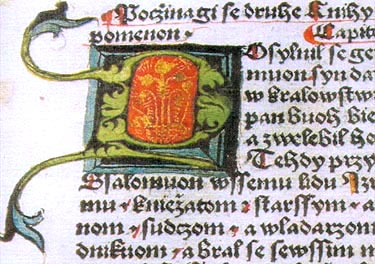 Poczinagi se druhe Knihy
pomenon Capit
Osylnil se ge
muon syn da
w kralowstw
pan buoh bie
a zwelebil ho
Tehdy przy
Ssalomuon wssemu lidu Izr
mu kniežatom starssym a
nom sudczom a wladarzom
dnikuom a bral se sewssim m